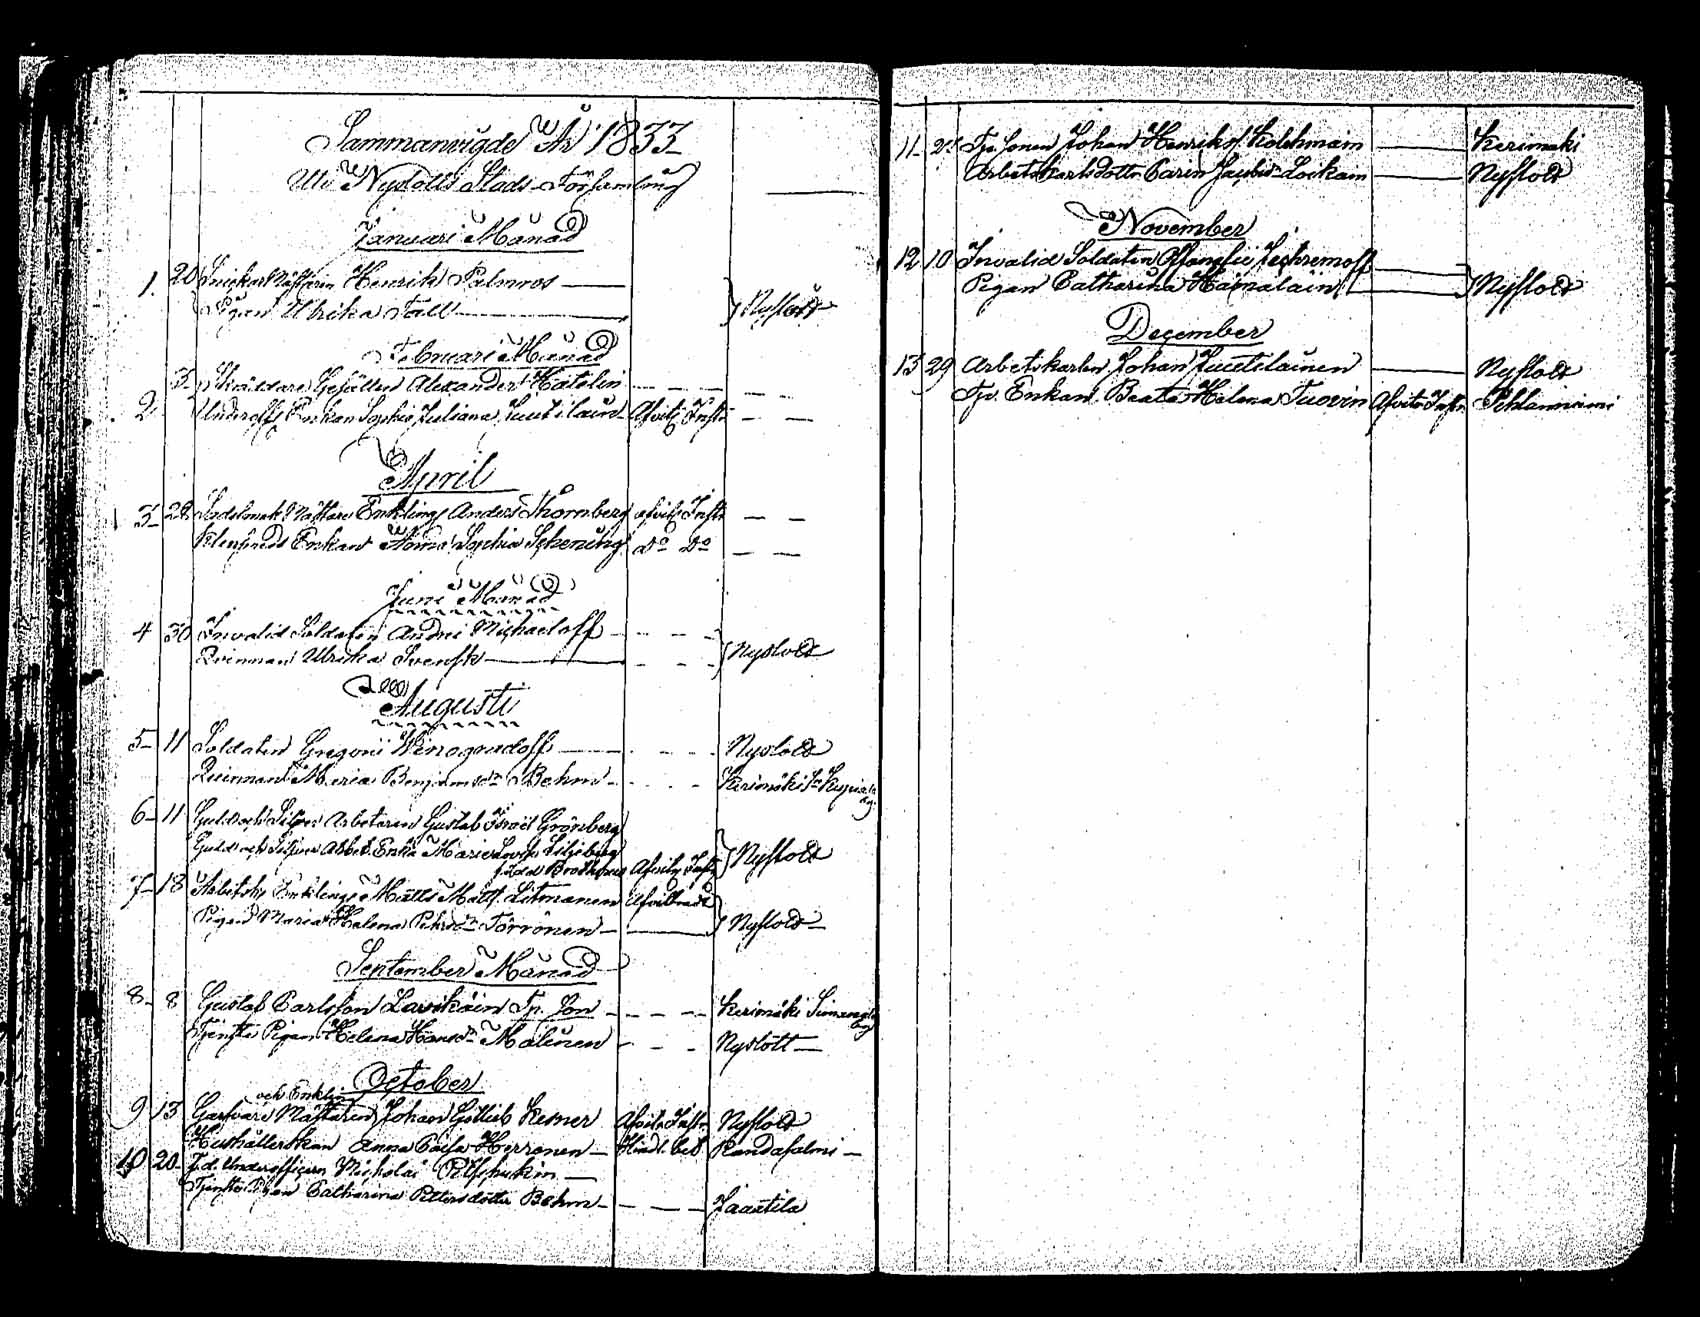 Sammanvigde År 1833
Uti Nyslotts Stads Församling
Januari Månad
1. 20 Snickar Mästaren Henrik Palmros
Pigan Ulrika Fall } Nyslott
Februari Månad
3 Skräddare Gesällen Alexander Hätelin
2 Underoff. Enkan Sophia Juliana Afvitt. Inftr
April
3 28 Sadelmak. Mästare Enkling Anders Thornberg afvitt. Inftr
Enkan Anna Sophia Do Do
Juni Månad
4 30 Invalid Soldaten Andrei Michaeloff
Qvinnan Ulrika Svensk } Nyslott
Augusti
5 11 Soldaten Gregorii Winogradoff Nyslott
Qvinnan Maria Benjamsdr Bohm Kerimäki
6 11 Guld och Silfver Arbetaren Gustaf Israel Grönberg
Guld och Silfver Arbet. Enka Maria Lovisa Liljeberg } Nyslott
född Afvitt. Inftr
7 18 Arbetsk. Enkling Matts Matts. Litmanen Afvittrad
Pigan Maria Helena Petersdr Törrönen } Nyslott
September Månad
8 8 Gustaf Carlsson Tp. Son Kerimäki
Tjenste Pigan Helena Hansdr Malinen Nyslott
October
och Enkling
9 13 Garfvare Mästaren Johan Gottlieb Afvitt. Inftr Nyslott
Hushållerskan Anna Caisa Herronen Randasalmi
10 20 Underofficeren Nicholai
Tjenste Pigan Catharina Pettersdotter Bohm Jäätilä
11 Tp. Sonen Johan Henriks. Kolehmain Kerimäki
Arbetskarlsdottr Carin Loikain Nyslott
November
12 10 Invalid Soldaten
Pigan Catharina Hämäläin } Nyslott
December
13 29 Arbetskarlen Johan Luutilainen Nyslott
Tp. Enkan Beata Helena Tuovin Afvitt. Inftr Pihlanniemi